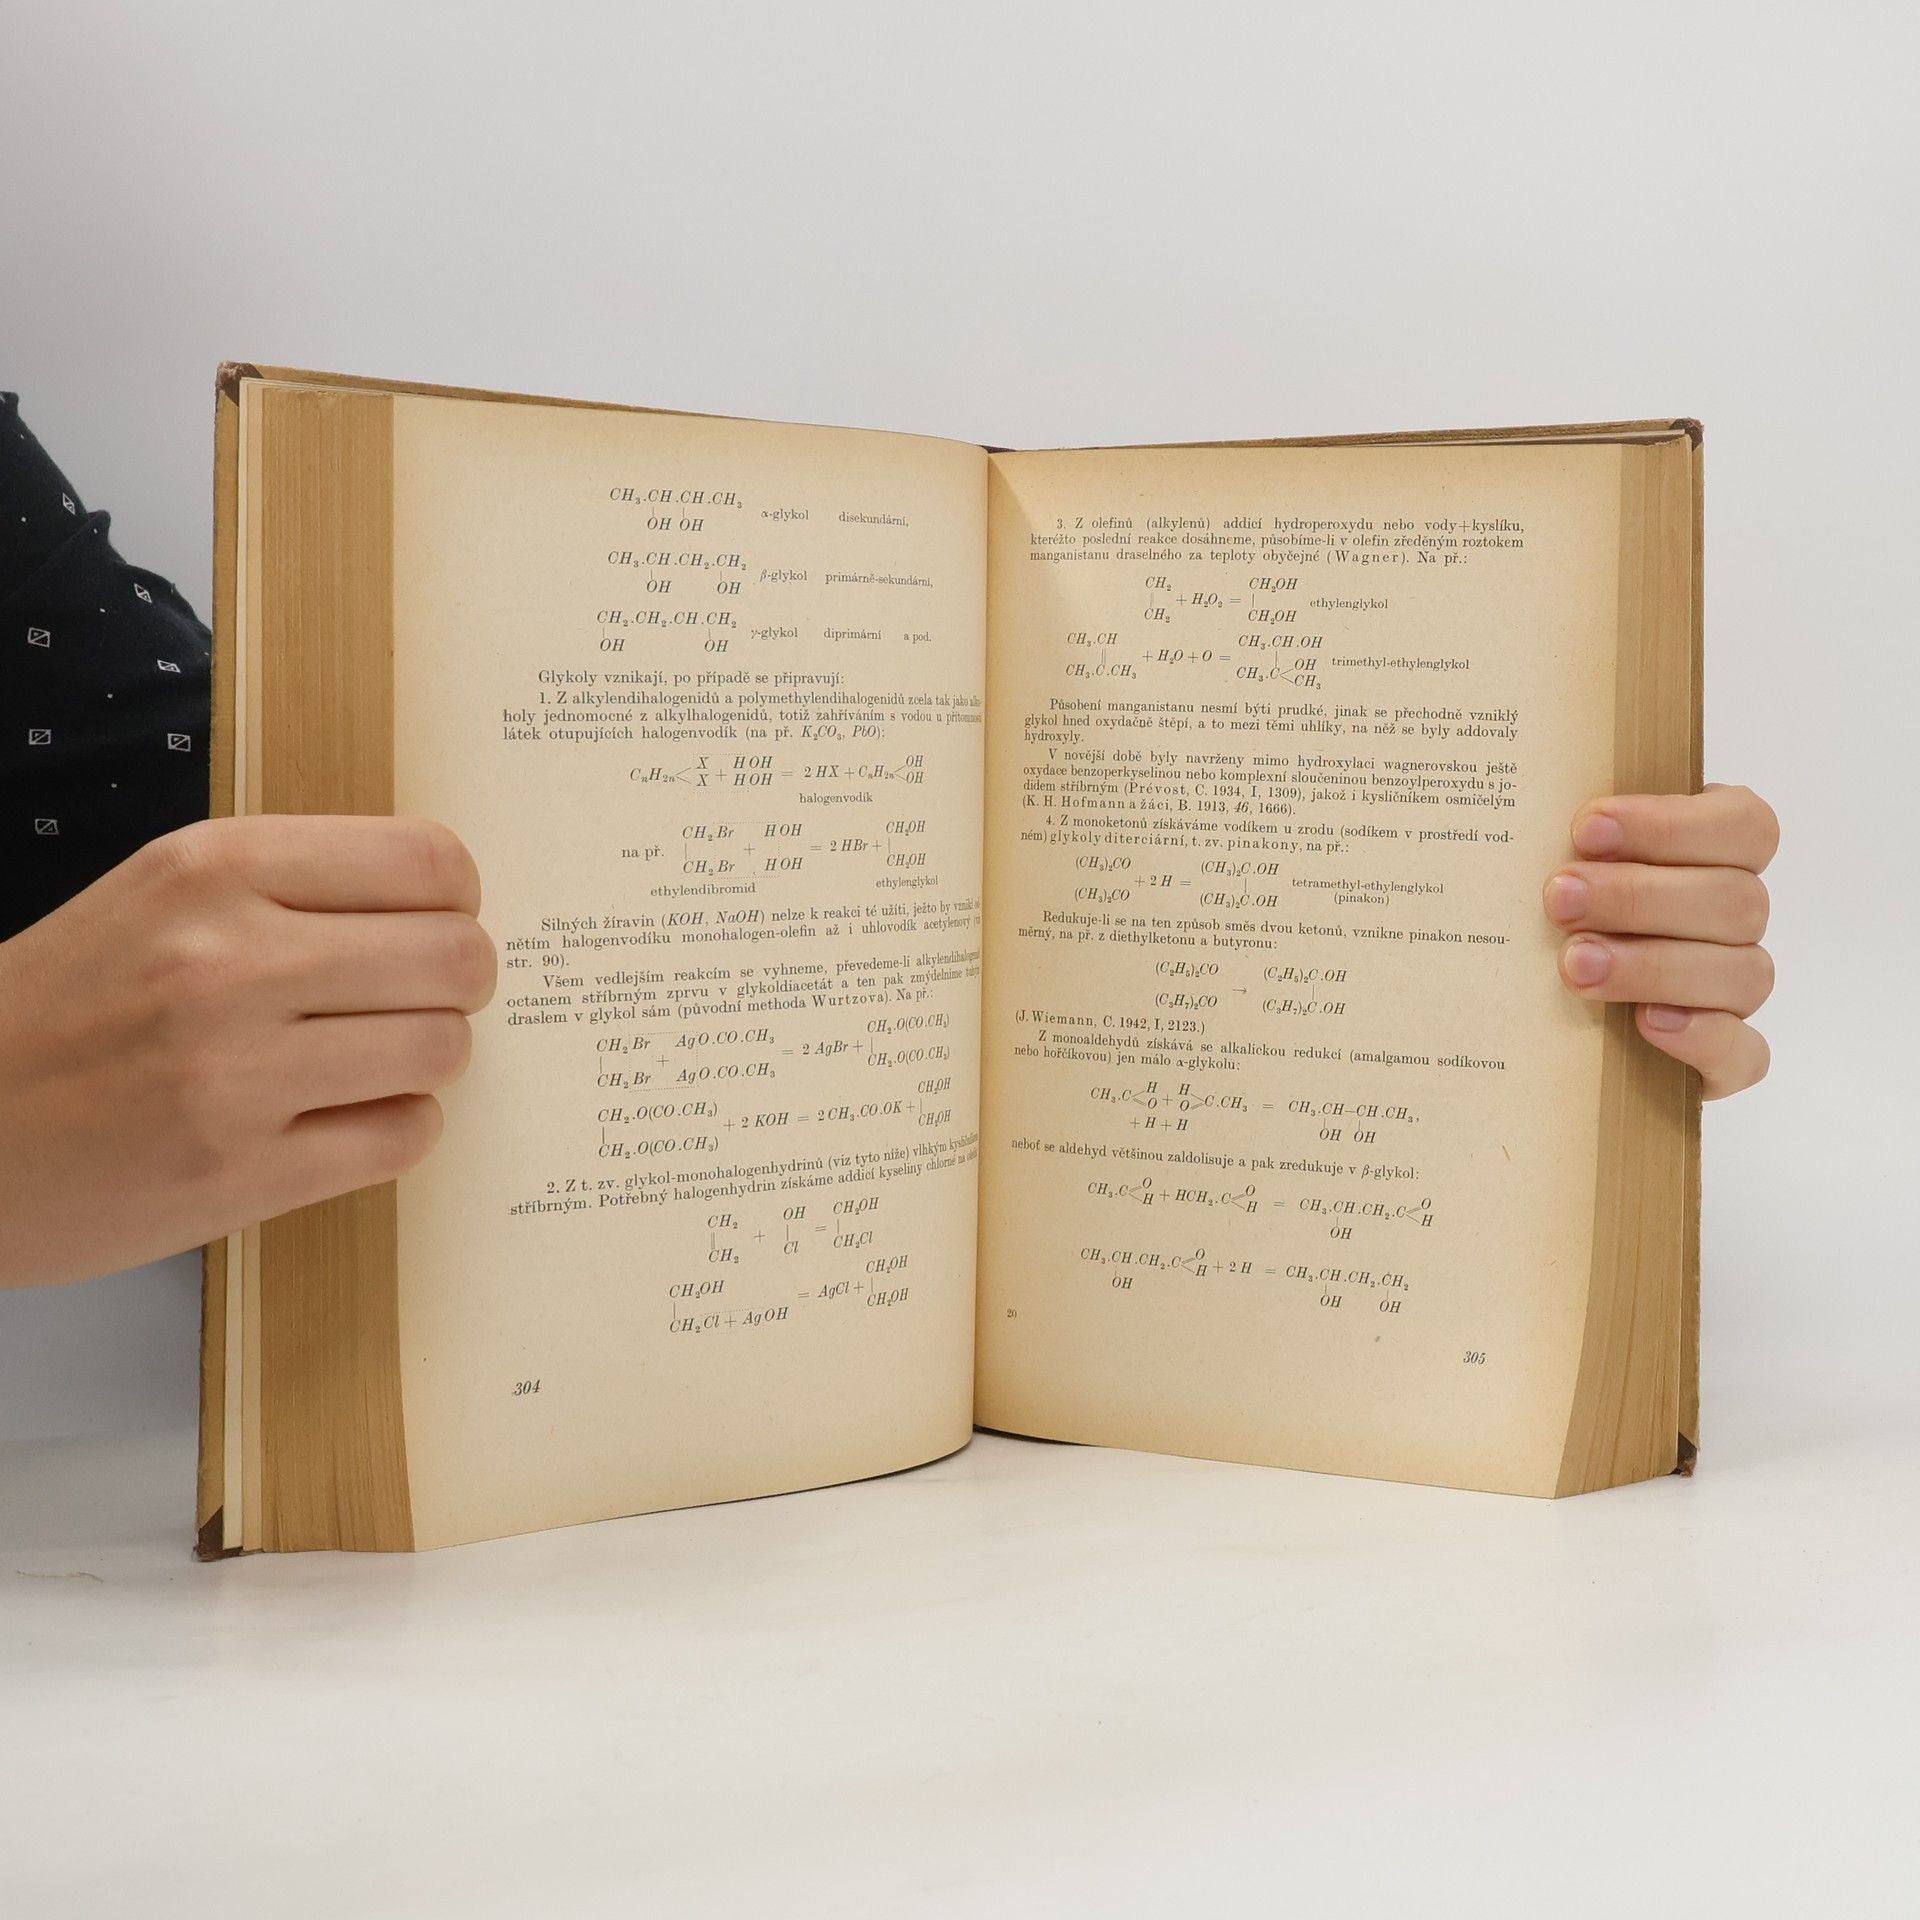 CH₃.CH.CH.CH₃
OH OH α-glykol disekundární,
CH₃.CH.CH₂.CH₂
OH OH β-glykol primárně-sekundární,
CH₂.CH₂.CH.CH₂
OH OH γ-glykol diprimární a pod.
Glykoly vznikají, po případě se připravují:
1. Z alkylendihalogenidů a polymethylendihalogenidů zcela tak jako
holy jednomocné z alkylhalogenidů, totiž zahříváním s vodou u přítomnosti
látek otupujících halogenvodík (na př. K₂CO₃, PbO):
CₙH₂ₙ< X + HOH = 2 HX + CₙH₂ₙ< OH
X HOH OH
halogenvodík
CH₂Br HOH CH₂OH
na př. | + = 2 HBr + |
CH₂Br HOH CH₂OH
ethylendibromid ethylenglykol
Silných žíravin (KOH, NaOH) nelze k reakci té užíti, ježto by vznikl
nětím halogenvodíku monohalogen-olefin až i uhlovodík acetylenový
str. 90).
Všem vedlejším reakcím se vyhneme, převedeme-li alkylendihalogenid
octanem stříbrným zprvu v glykoldiacetát a ten pak zmýdelníme
draslem v glykol sám (původní methoda Wurtzova). Na př.:
CH₂Br AgO.CO.CH₃ CH₂.O(CO.CH₃)
| + = 2 AgBr + |
CH₂Br AgO.CO.CH₃ CH₂.O(CO.CH₃)
CH₂.O(CO.CH₃) CH₂OH
| + 2 KOH = 2 CH₃.CO.OK + |
CH₂.O(CO.CH₃) CH₂OH
2. Z t. zv. glykol-monohalogenhydrinů (viz tyto níže) vlhkým kysličníkem
stříbrným. Potřebný halogenhydrin získáme addicí kyseliny chlorné na
CH₂ OH CH₂OH
|| + | = |
CH₂ Cl CH₂Cl
CH₂OH CH₂OH
| = AgCl + |
CH₂Cl + AgOH CH₂OH
304
3. Z olefinů (alkylenů) addicí hydroperoxydu nebo vody+kyslíku,
kteréžto poslední reakce dosáhneme, působíme-li v olefin zředěným roztokem
manganistanu draselného za teploty obyčejné (Wagner). Na př.:
CH₂ CH₂OH
|| + H₂O₂ = | ethylenglykol
CH₂ CH₂OH
CH₃.CH CH₃.CH.OH
|| + H₂O + O = | OH trimethyl-ethylenglykol
CH₃.C.CH₃ CH₃.C< CH₃
Působení manganistanu nesmí býti prudké, jinak se přechodně vzniklý
glykol hned oxydačně štěpí, a to mezi těmi uhlíky, na něž se byly addovaly
hydroxyly.
V novější době byly navrženy mimo hydroxylaci wagnerovskou ještě
oxydace benzoperkyselinou nebo komplexní sloučeninou benzoylperoxydu s jo-
didem stříbrným (Prévost, C. 1934, I, 1309), jakož i kysličníkem osmičelým
(K. H. Hofmann a žáci, B. 1913, 46, 1666).
4. Z monoketonů získáváme vodíkem u zrodu (sodíkem v prostředí vod-
ném) glykoly diterciární, t. zv. pinakony, na př.:
(CH₃)₂CO (CH₃)₂C.OH
+ 2 H = | tetramethyl-ethylenglykol
(CH₃)₂CO (CH₃)₂C.OH (pinakon)
Redukuje-li se na ten způsob směs dvou ketonů, vznikne pinakon nesou-
měrný, na př. z diethylketonu a butyronu:
(C₂H₅)₂CO (C₂H₅)₂C.OH
→ |
(C₃H₇)₂CO (C₃H₇)₂C.OH
(J. Wiemann, C. 1942, I, 2123.)
Z monoaldehydů získává se alkalickou redukcí (amalgamou sodíkovou
nebo hořčíkovou) jen málo α-glykolu:
CH₃.C< H + H >C.CH₃ = CH₃.CH–CH.CH₃,
O O
+ H + H OH OH
neboť se aldehyd většinou zaldolisuje a pak zredukuje v β-glykol:
CH₃.C< O + HCH₂.C< O = CH₃.CH.CH₂.C< O
H H H
OH
CH₃.CH.CH₂.C< O + 2 H = CH₃.CH.CH₂.CH₂
H
OH OH OH
20
305